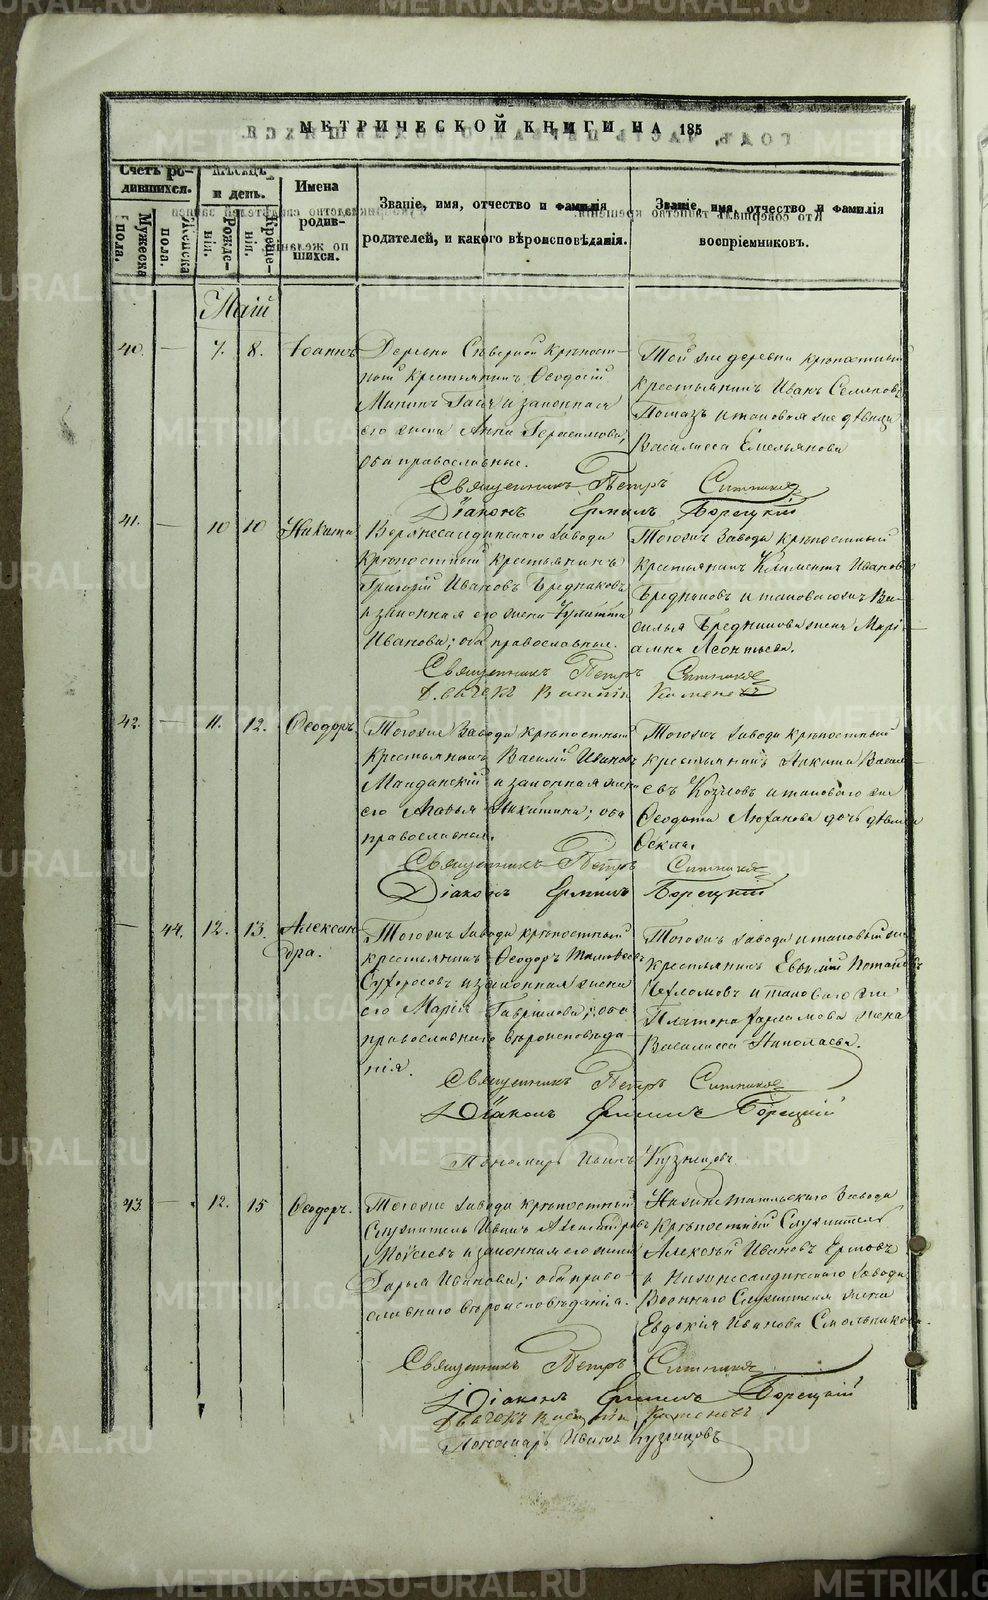 МЕТРИЧЕСКОЙ КНИГИ НА 185
Счетъ ро-
дившихся.
Мужеска
пола.
Женска
пола.
Мѣсяцъ
и день.
Рожде-
нія.
Креще-
нія.
Имена
родив-
шихся.
Званіе, имя, отчество и фамилія
родителей, и какого вѣроисповѣданія.
Званіе, имя, отчество и фамилія
воспріемниковъ.
Маій
40. — 7. 8. Іоаннъ
Деревни Сѣверной крѣпост-
ной крестьянинъ Ѳеодосій
и законная
его жена Анна Герасимова,
оба православные.
Той же деревни крѣпостный
крестьянинъ Иванъ
и таковая же дѣвица
Василисса Емельянова
Священникъ Петръ Ситников
Діаконъ Ермилъ Борецкій
41. — 10 10 Никита
Верхнесалдинскаго завода
крѣпостный крестьянинъ
Григорій Ивановъ Бредниковъ
и законная его жена Іулитта
Иванова; оба православные.
Тогожъ завода крѣпостный
крестьянинъ Климентъ Ивановъ
Бредниковъ и таковагожъ Ва-
силья Бредникова жена Марі-
амна Леонтьева.
Священникъ Петръ Ситников
Дьячекъ Василій Каменевъ
42. — 11. 12. Ѳеодоръ
Тогоже завода крѣпостный
крестьянинъ Василій Ивановъ
и законная жена
его Никитина; оба
православные.
Тогожъ завода крѣпостный
крестьянинъ Никита Василь-
евъ Козловъ и таковаго же
Ѳеодота дочь дѣвица
Ѳекла.
Священникъ Петръ Ситников
Діаконъ Ермилъ Борецкій
— 44. 12. 13. Алексан-
дра.
Тогожъ завода крѣпостный
крестьянинъ Ѳеодоръ
и законная жена
его Марія Гавріилова; оба
православнаго вѣроисповѣда
нія.
Тогожъ завода и таковый же
крестьянинъ Евѳимій Потаповъ
и таковаго же
Платона Варламова жена
Василисса Николаева.
Священникъ Петръ Ситников
Діаконъ Ермилъ Борецкій
Пономарь Иванъ Кузнецовъ
43. — 12. 15 Ѳеодоръ.
Тогоже завода крѣпостный
Служитель Иванъ
Моѵсеевъ и законная его жена
Дарья Иванова; оба право-
славнаго вѣроисповѣданія.
Нижнетагильскаго Завода
крѣпостный Служитель
Алексѣй Ивановъ
и Нижнесалдинскаго завода
Военнаго Служителя жена
Евдокія Иванова Смольникова.
Священникъ Петръ Ситников
Діаконъ Ермилъ Борецкій
Дьячекъ Василій Каменевъ
Пономарь Иванъ Кузнецовъ
METRIKI.GASO-URAL.RU